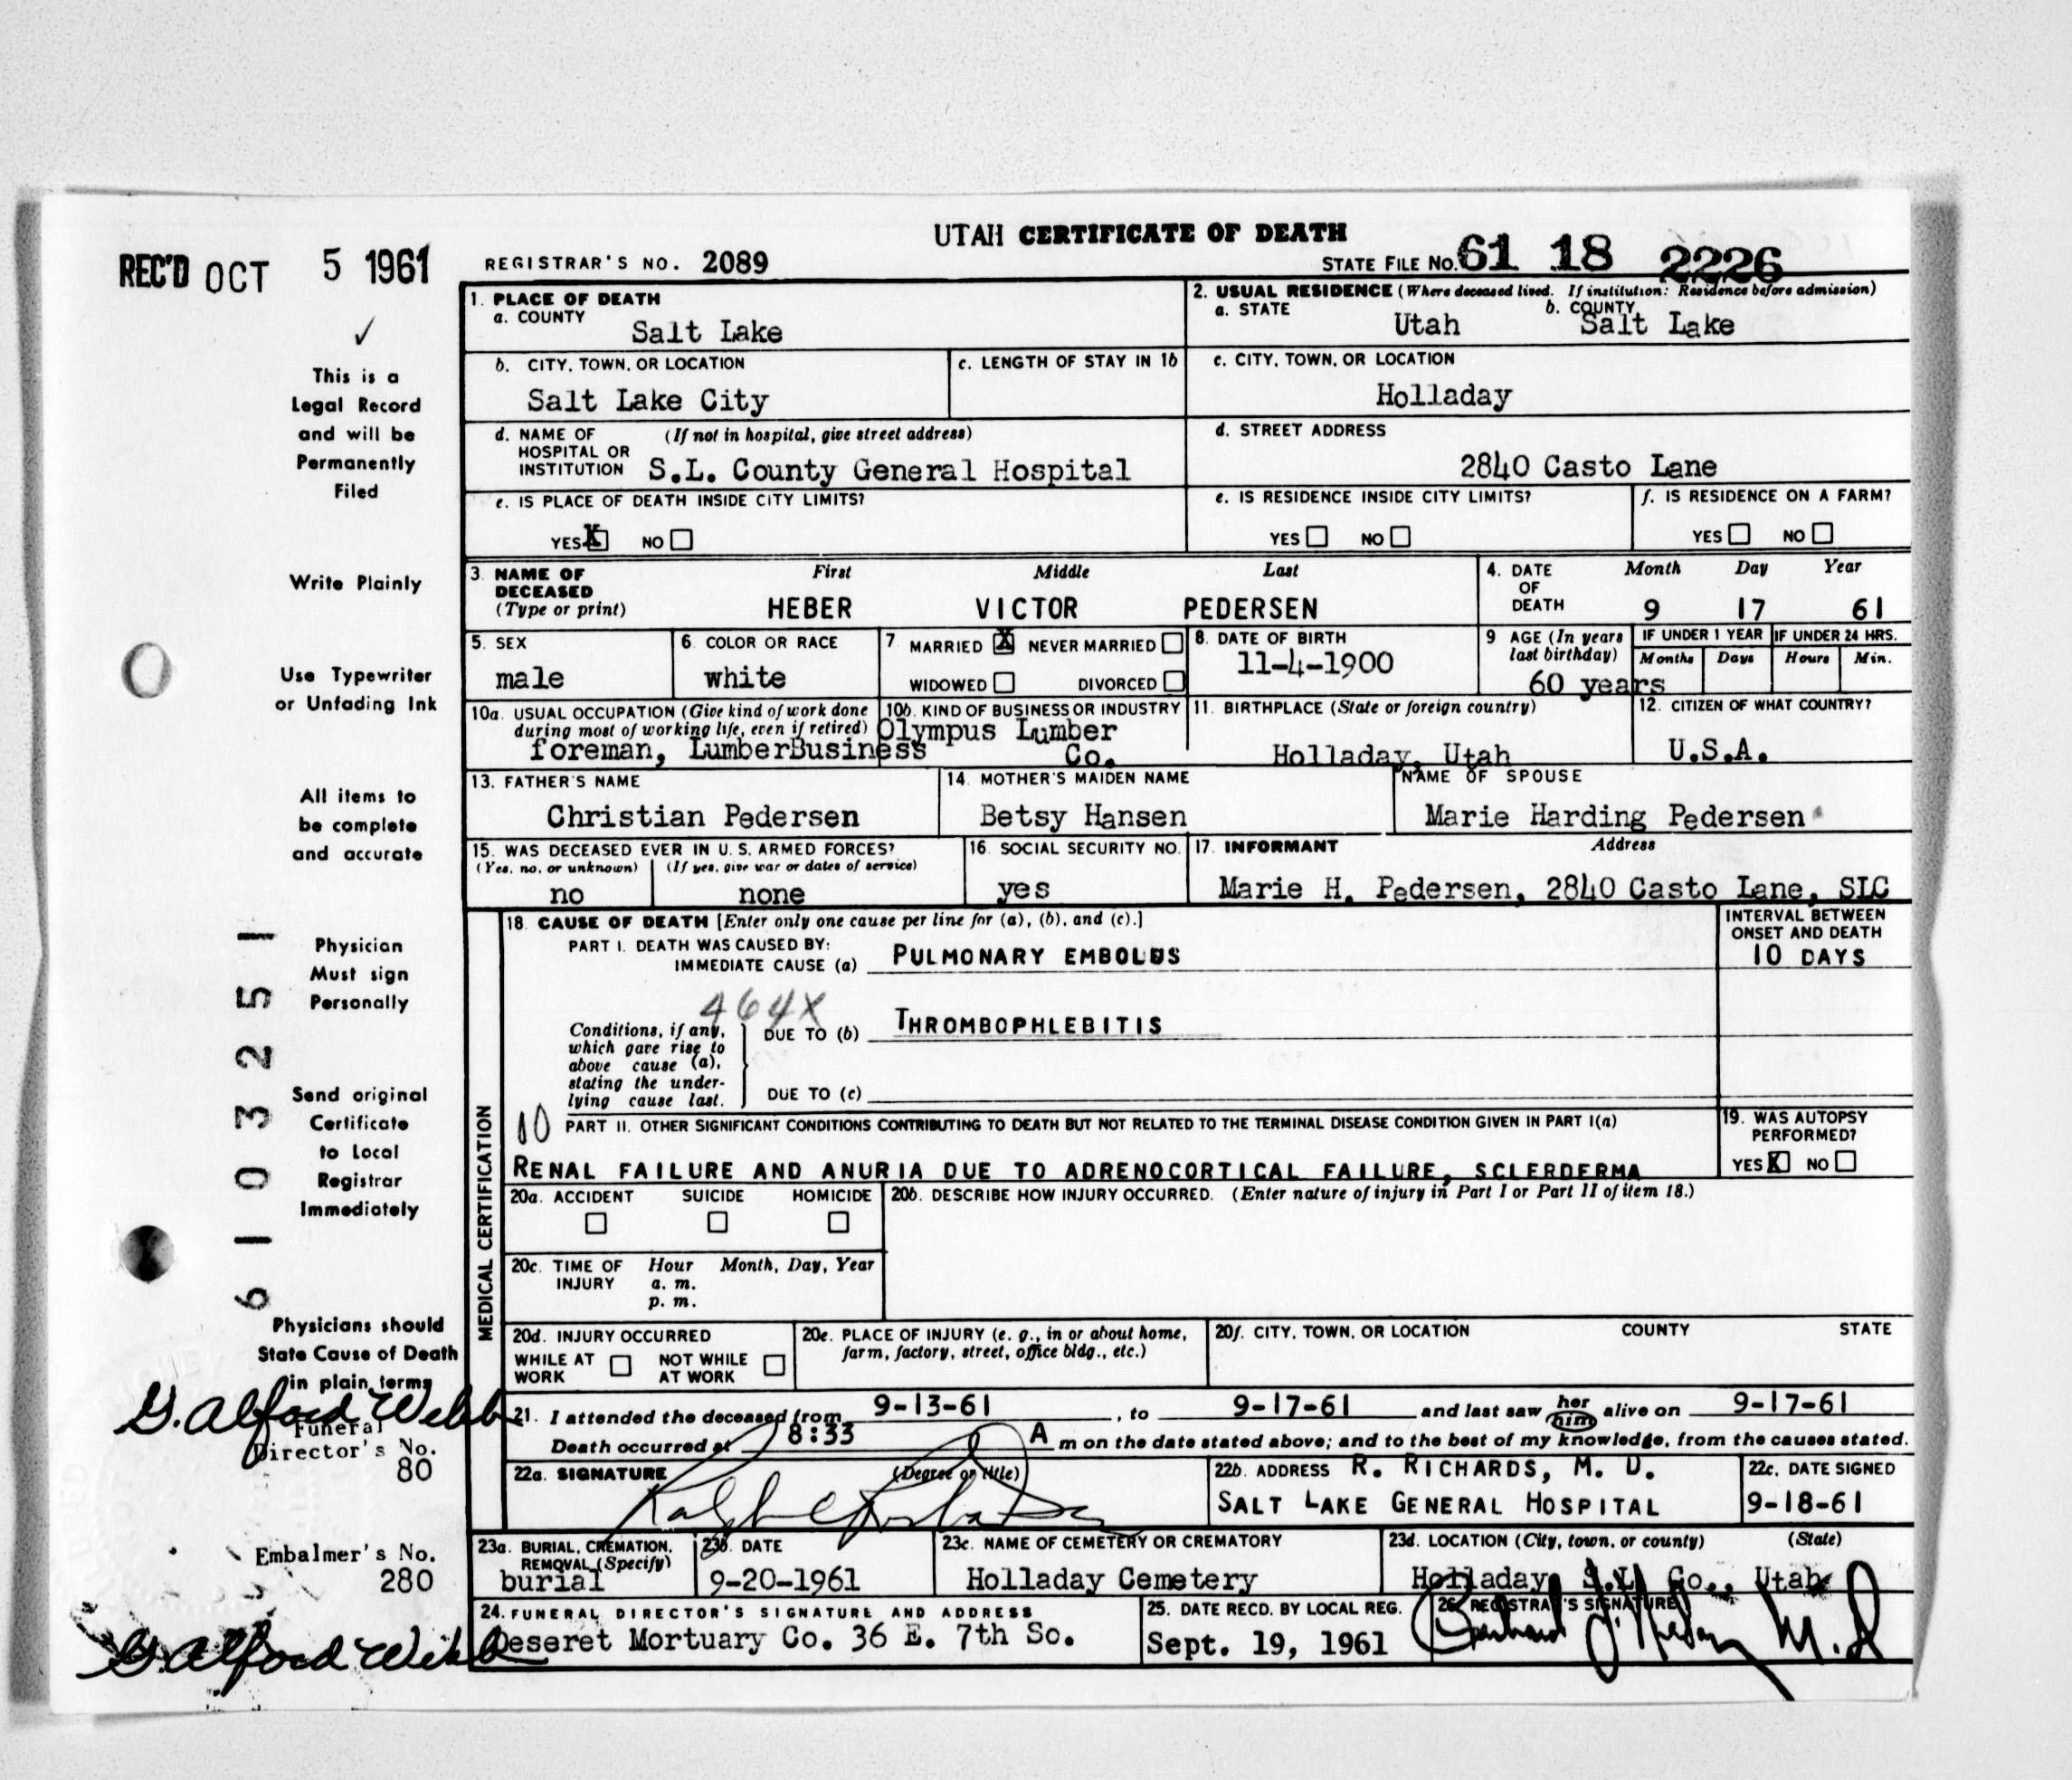 UTAH CERTIFICATE OF DEATH
REC'D OCT 5 1961
REGISTRAR'S NO. 2089
STATE FILE NO. 61 18 2226
✓
This is a
Legal Record
and will be
Permanently
Filed
Write Plainly
Use Typewriter
or Unfading Ink
All items to
be complete
and accurate
Physician
Must sign
Personally
Send original
Certificate
to Local
Registrar
Immediately
Physicians should
State Cause of Death
in plain terms
6103251
G. Alford Webb
Funeral
Director's No.
80
Embalmer's No.
280
G. Alford Webb
1. PLACE OF DEATH
a. COUNTY
Salt Lake
2. USUAL RESIDENCE (Where deceased lived. If institution: Residence before admission)
a. STATE Utah b. COUNTY Salt Lake
b. CITY, TOWN, OR LOCATION
Salt Lake City
c. LENGTH OF STAY IN 1b
c. CITY, TOWN, OR LOCATION
Holladay
d. NAME OF (If not in hospital, give street address)
HOSPITAL OR
INSTITUTION S.L. County General Hospital
d. STREET ADDRESS
2840 Casto Lane
e. IS PLACE OF DEATH INSIDE CITY LIMITS?
YES X NO
e. IS RESIDENCE INSIDE CITY LIMITS?
YES NO
f. IS RESIDENCE ON A FARM?
YES NO
3. NAME OF First Middle Last
DECEASED
(Type or print) HEBER VICTOR PEDERSEN
4. DATE Month Day Year
OF
DEATH 9 17 61
5. SEX
male
6. COLOR OR RACE
white
7 MARRIED X NEVER MARRIED
WIDOWED DIVORCED
8. DATE OF BIRTH
11-4-1900
9 AGE (In years
last birthday)
60 years
IF UNDER 1 YEAR IF UNDER 24 HRS.
Months Days Hours Min.
10a. USUAL OCCUPATION (Give kind of work done
during most of working life, even if retired)
foreman, LumberBusiness
10b. KIND OF BUSINESS OR INDUSTRY
Olympus Lumber
Co.
11. BIRTHPLACE (State or foreign country)
Holladay, Utah
12. CITIZEN OF WHAT COUNTRY?
U.S.A.
13. FATHER'S NAME
Christian Pedersen
14. MOTHER'S MAIDEN NAME
Betsy Hansen
NAME OF SPOUSE
Marie Harding Pedersen
15. WAS DECEASED EVER IN U.S. ARMED FORCES?
(Yes, no, or unknown) (If yes, give war or dates of service)
no none
16. SOCIAL SECURITY NO.
yes
17. INFORMANT Address
Marie H. Pedersen, 2840 Casto Lane, SLC
MEDICAL CERTIFICATION
18. CAUSE OF DEATH [Enter only one cause per line for (a), (b), and (c).]
INTERVAL BETWEEN
ONSET AND DEATH
PART I. DEATH WAS CAUSED BY:
IMMEDIATE CAUSE (a) PULMONARY EMBOLUS
10 DAYS
464X
Conditions, if any,
which gave rise to
above cause (a),
stating the under-
lying cause last.
DUE TO (b) THROMBOPHLEBITIS
DUE TO (c)
10
PART II. OTHER SIGNIFICANT CONDITIONS CONTRIBUTING TO DEATH BUT NOT RELATED TO THE TERMINAL DISEASE CONDITION GIVEN IN PART I(a)
RENAL FAILURE AND ANURIA DUE TO ADRENOCORTICAL FAILURE, SCLERDERMA
19. WAS AUTOPSY
PERFORMED?
YES X NO
20a. ACCIDENT SUICIDE HOMICIDE
20b. DESCRIBE HOW INJURY OCCURRED. (Enter nature of injury in Part I or Part II of item 18.)
20c. TIME OF Hour Month, Day, Year
INJURY a. m.
p. m.
20d. INJURY OCCURRED
WHILE AT NOT WHILE
WORK AT WORK
20e. PLACE OF INJURY (e. g., in or about home,
farm, factory, street, office bldg., etc.)
20f. CITY, TOWN, OR LOCATION COUNTY STATE
21. I attended the deceased from 9-13-61, to 9-17-61 and last saw her him alive on 9-17-61
Death occurred at 8:33 A m on the date stated above; and to the best of my knowledge, from the causes stated.
22a. SIGNATURE (Degree or title)
22b. ADDRESS R. RICHARDS, M. D.
SALT LAKE GENERAL HOSPITAL
22c. DATE SIGNED
9-18-61
23a. BURIAL, CREMATION,
REMOVAL (Specify)
burial
23b. DATE
9-20-1961
23c. NAME OF CEMETERY OR CREMATORY
Holladay Cemetery
23d. LOCATION (City, town, or county) (State)
Holladay S.L. Co., Utah
24. FUNERAL DIRECTOR'S SIGNATURE AND ADDRESS
Deseret Mortuary Co. 36 E. 7th So.
25. DATE RECD. BY LOCAL REG.
Sept. 19, 1961
26. REGISTRAR'S SIGNATURE
M.D